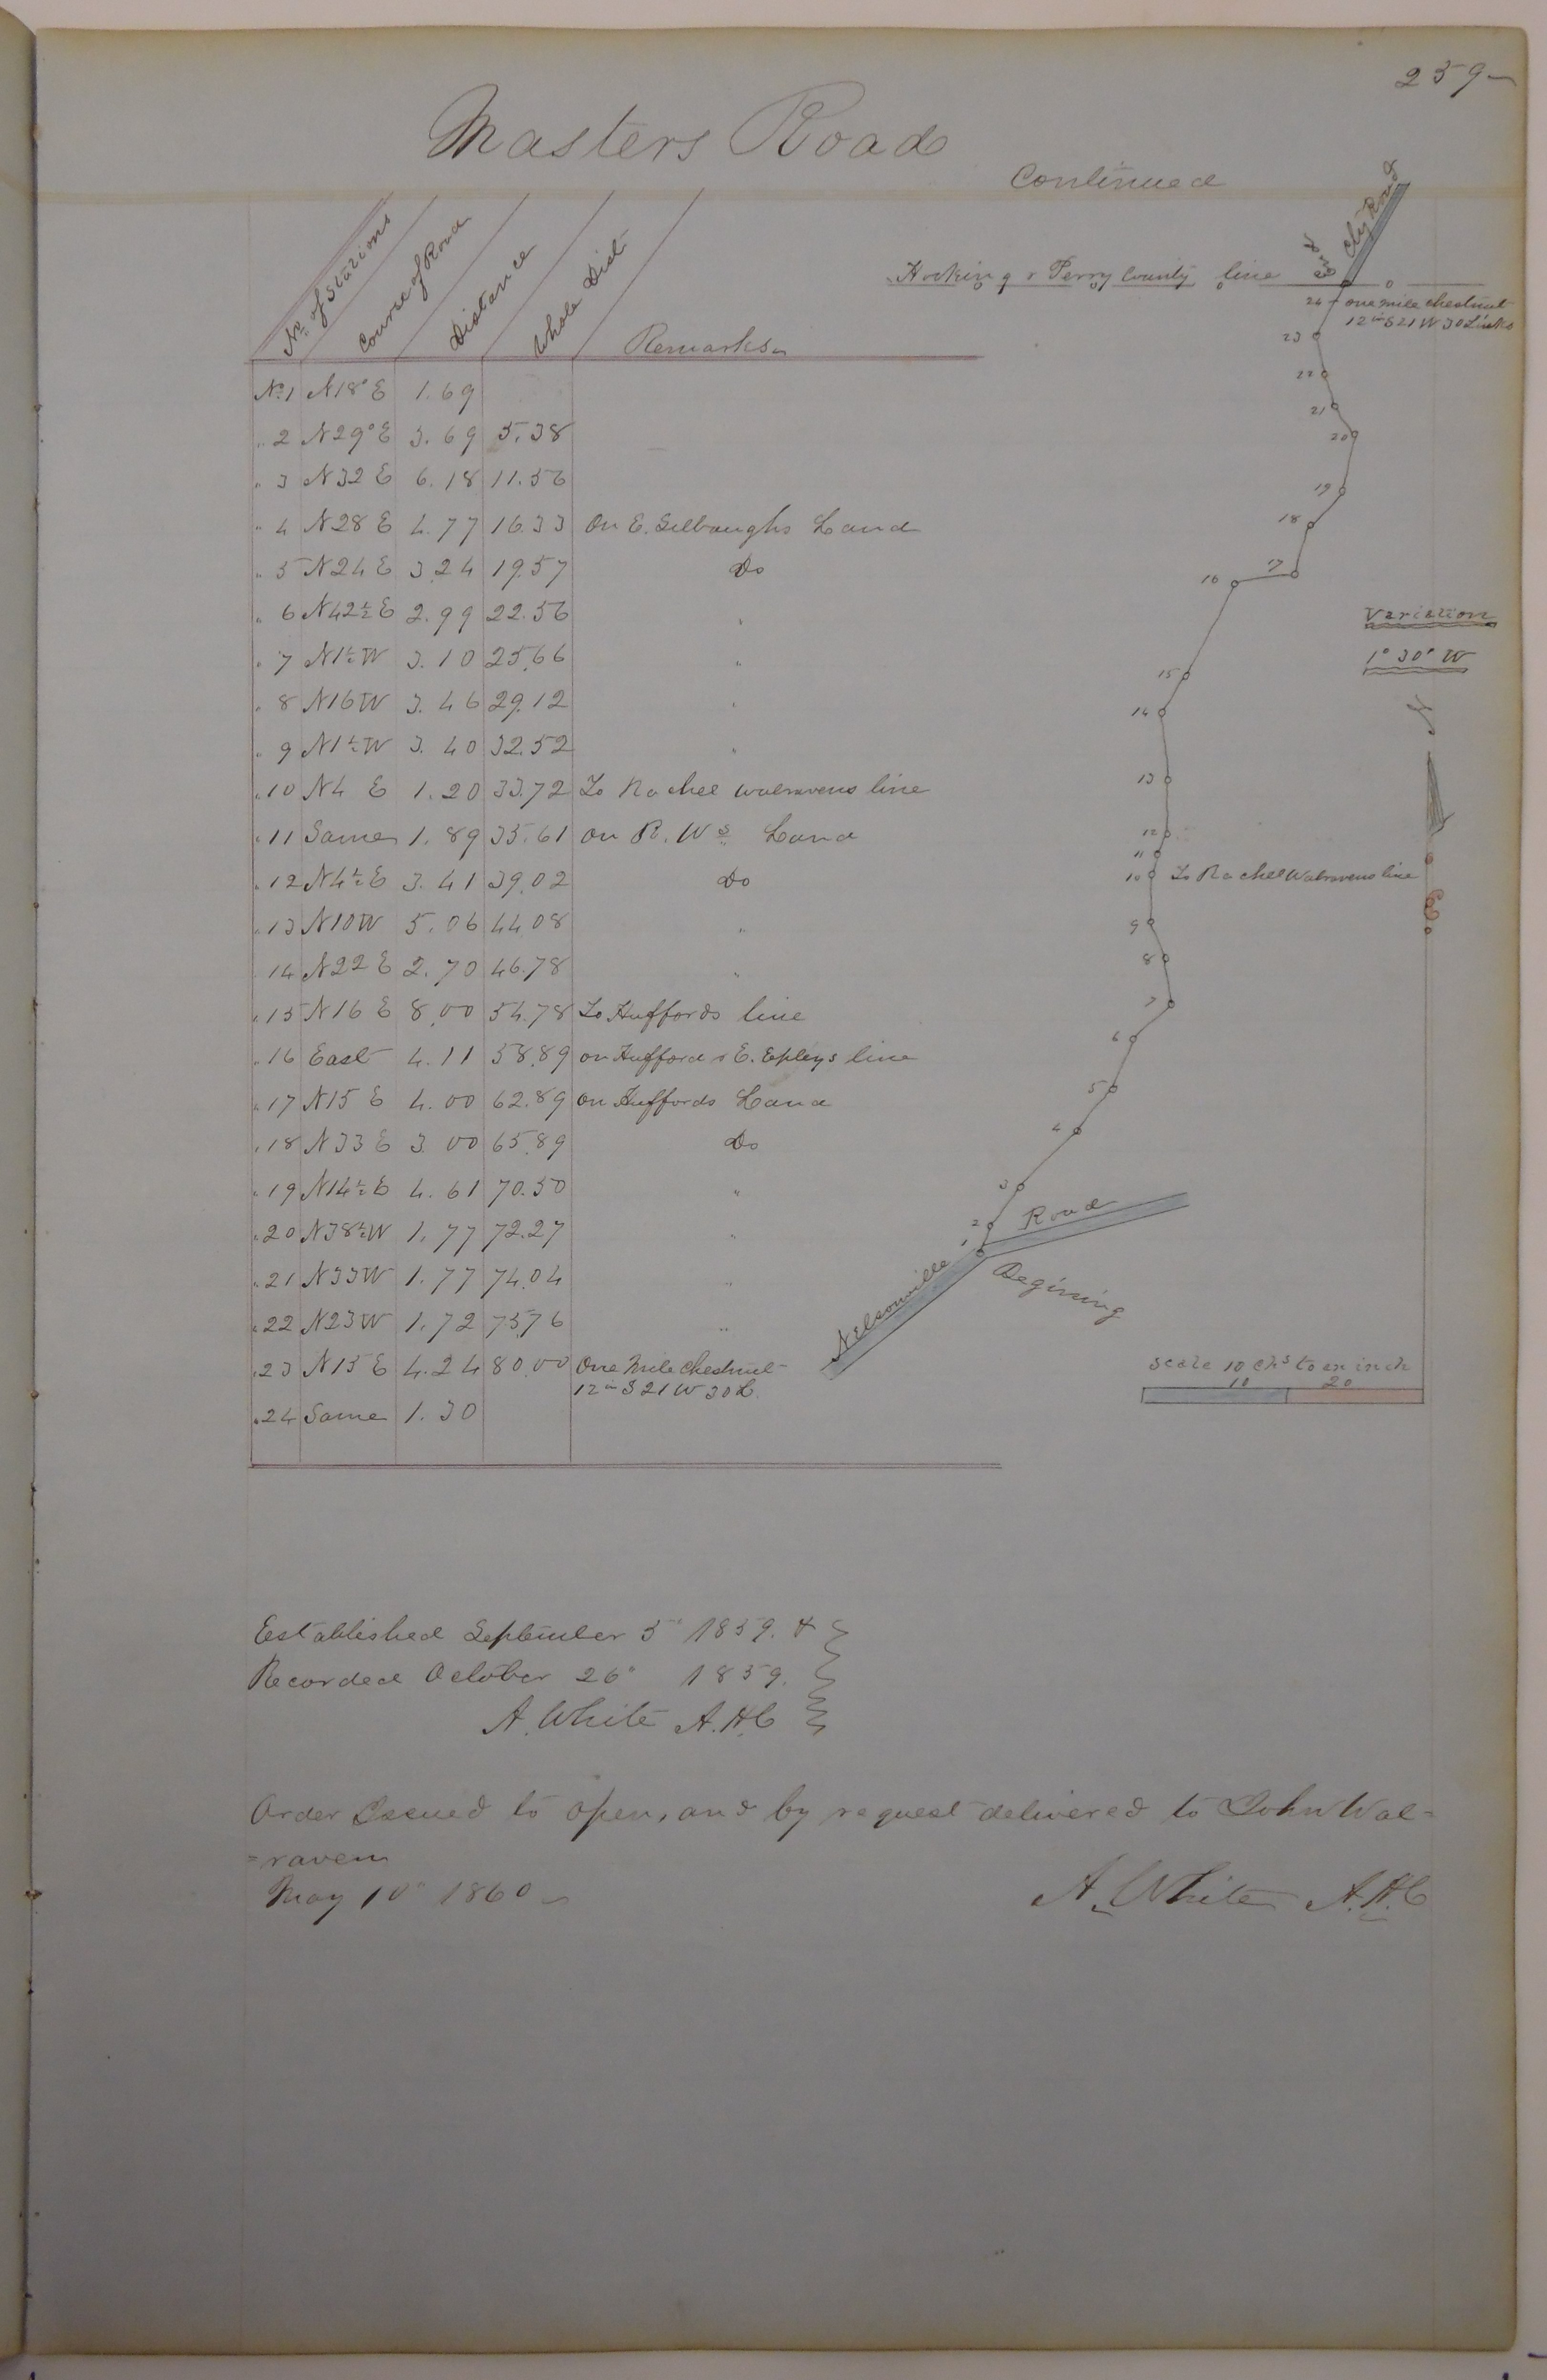 259
Masters Road
Continued
No. of Stations Course of Road Distance Whole Dist Remarks
No 1 N18°E 1.69
" 2 N29°E 3.69 5.38
" 3 N32 E 6.18 11.56
" 4 N28 E 4.77 16.33 On E. Land
" 5 N24 E 3.24 19.57 Do
" 6 N42½E 2.99 22.56 "
" 7 N1½W 3.10 25.66 "
" 8 N16W 3.46 29.12 "
" 9 N1½W 3.40 32.52 "
" 10 N4 E 1.20 33.72 To Rachel Walravens line
" 11 Same 1.89 35.61 on R. Ws Land
" 12 N4½E 3.41 39.02 Do
" 13 N10W 5.06 44.08 "
14 N22 E 2.70 46.78 "
" 15 N16 E 8.00 54.78 To Huffords line
" 16 East 4.11 58.89 on Hufford & E. Epleys line
" 17 N15 E 4.00 62.89 on Huffords Land
" 18 N33 E 3.00 65.89 Do
" 19 N14½E 4.61 70.50 "
" 20 N38½W 1.77 72.27 "
" 21 N33W 1.77 74.04 "
" 22 N23W 1.72 75.76 "
" 23 N15 E 4.24 80.00 One Mile Chestnut
12in S21W 30 L.
" 24 Same 1.30
Hocking & Perry County line
End
Cty Road
24 one mile chestnut
12in S21W 30 Links
23
22
21
20
19
18
7
16
15
14
13
12
11
10 To Rachel Walravens line
9
8
7
6
5
4
3
2
1
Variation
1° 30' W
Nelsonville Road
Begining
Scale 10 chs to an inch
10 20
Established September 5" 1859. &
Recorded October 26" 1859.
A. White A.H.C
Order Issued to open, and by request delivered to John Wal=
=raven
May 10" 1860
A. White A.H.C